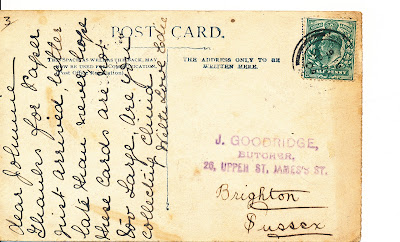 3
POST CARD.
THIS SPACE AS WELL AS THE BACK, MAY
NOW BE USED FOR COMMUNICATION.
(Post Office Regulation)
THE ADDRESS ONLY TO BE
WRITTEN HERE.
HALF PENNY
dear Johnnie
Thanks for Paper
just arrived, better
late than never, hope
these cards are not
too Large, are you
collecting
With Love Edie
J. GOODRIDGE,
BUTCHER,
20, UPPER ST. JAMES'S ST.
Brighton
Sussex